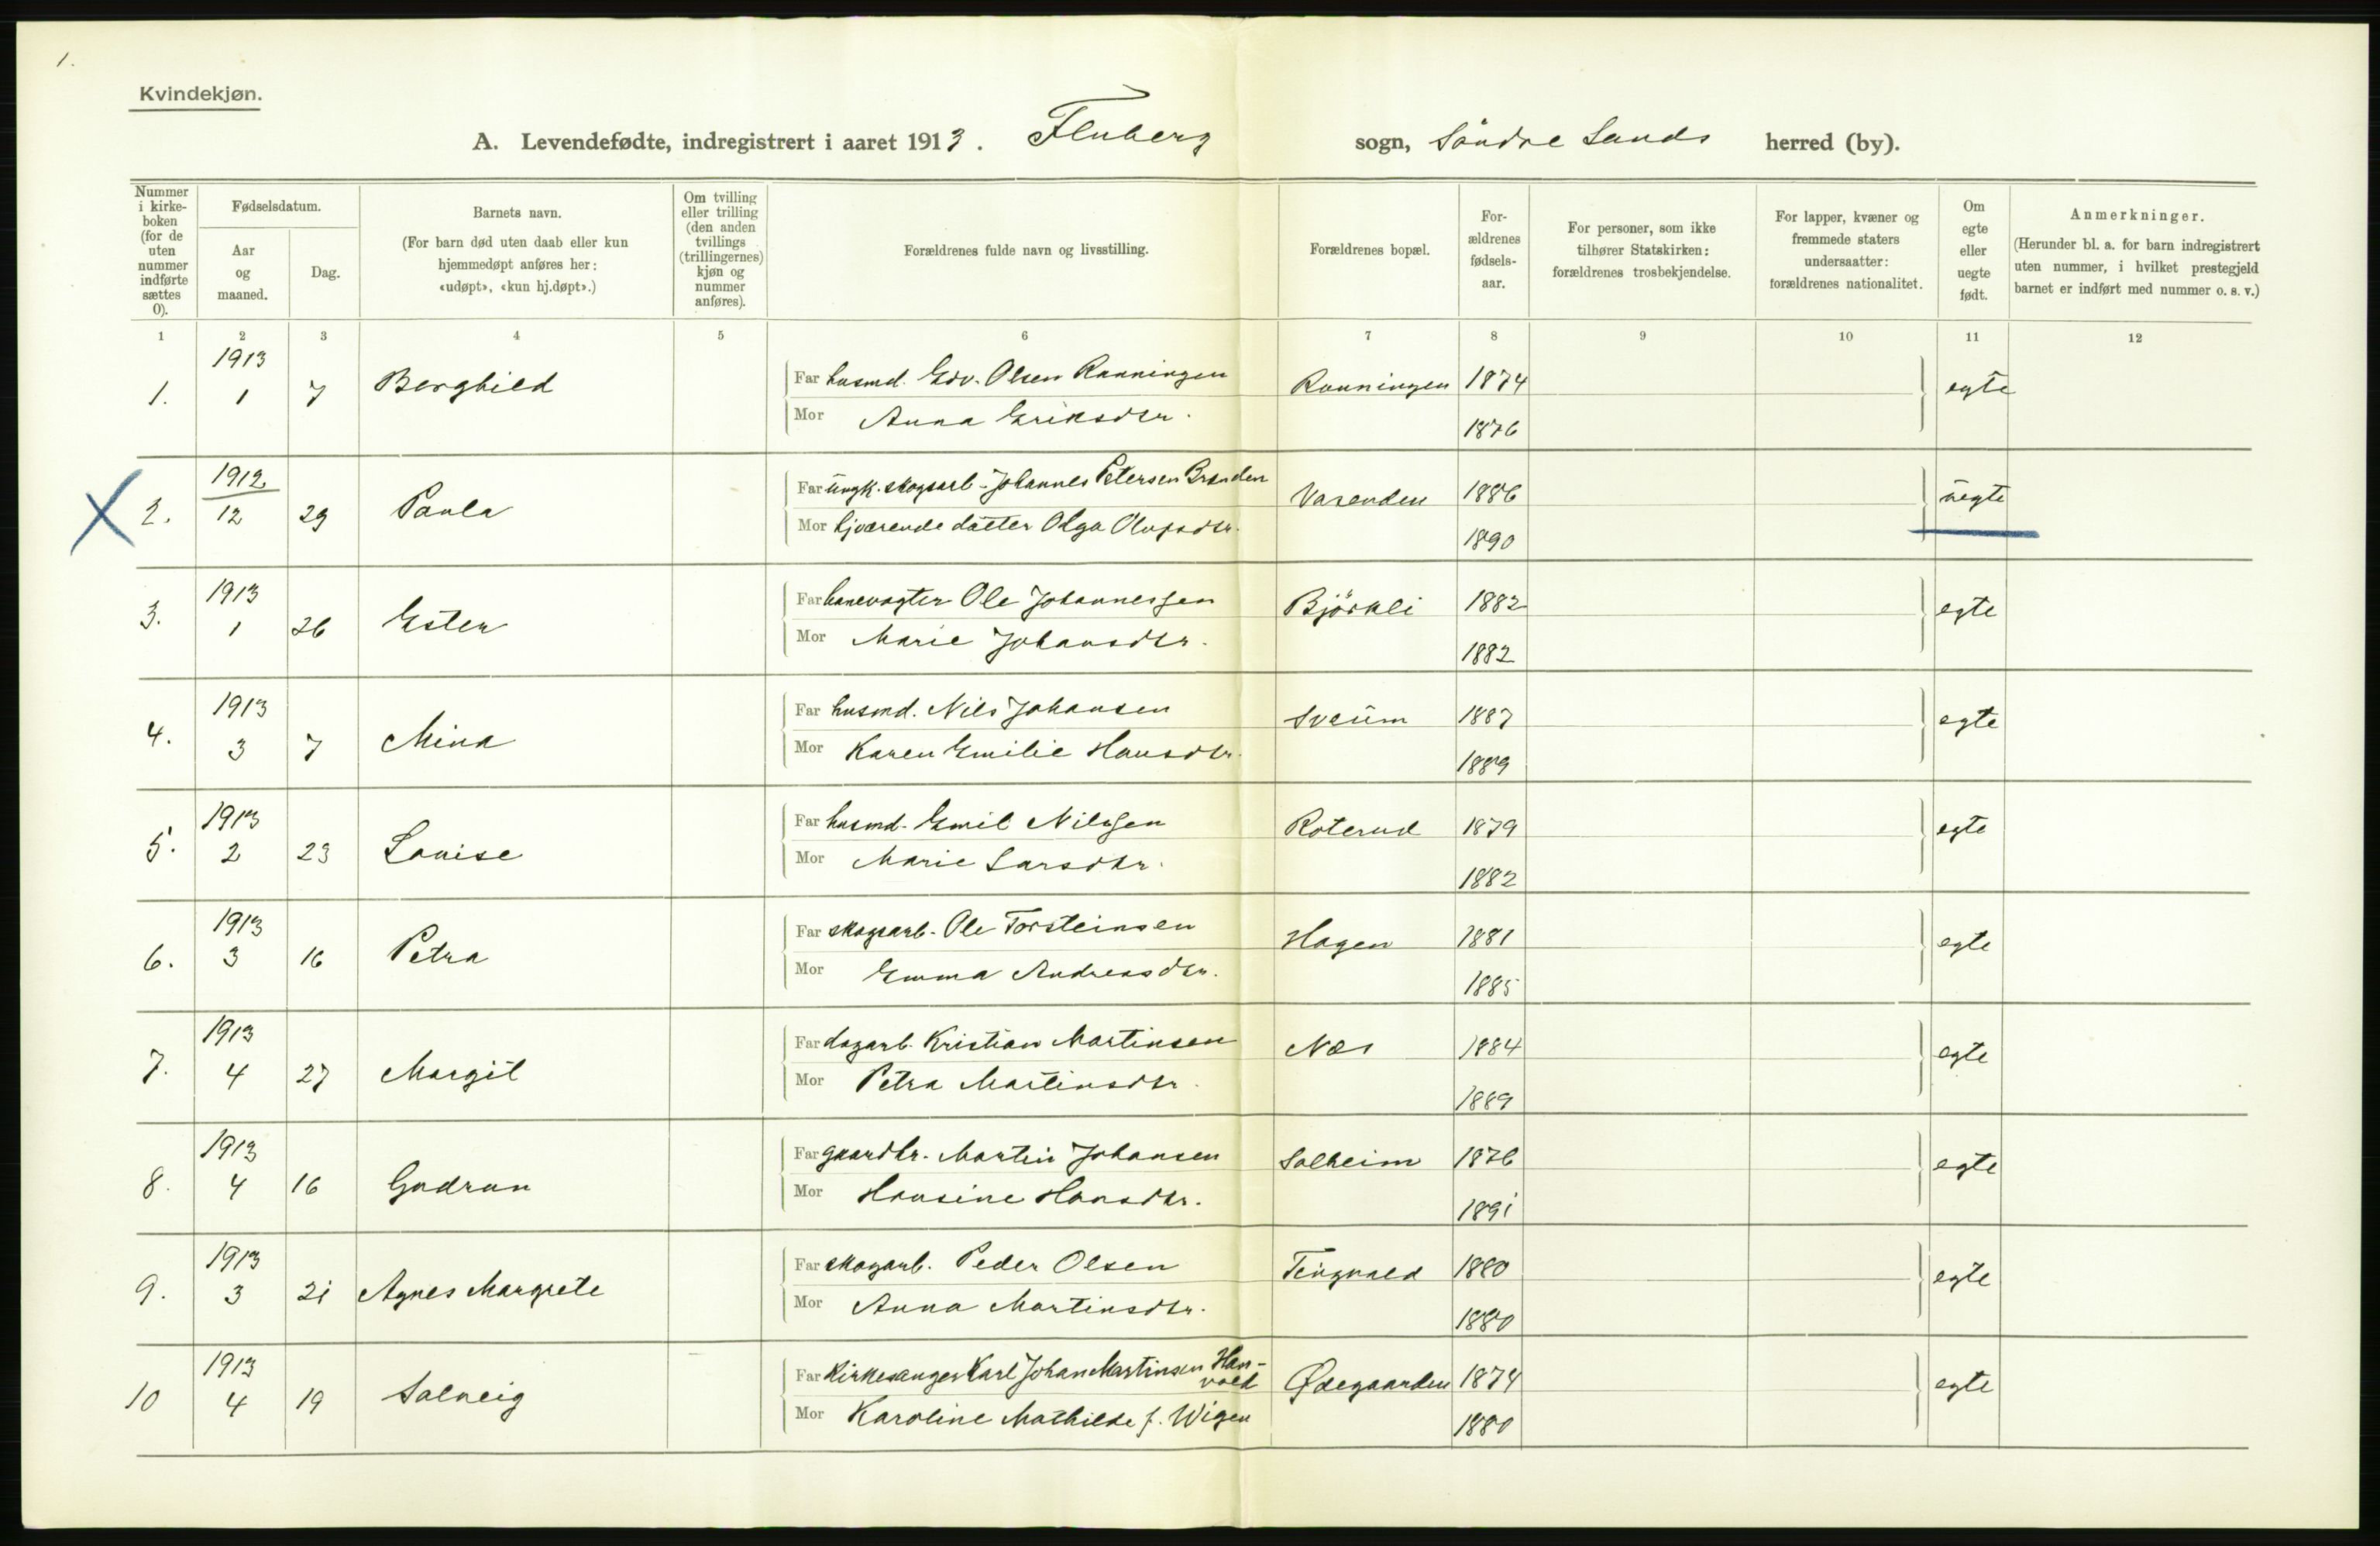 1.
Kvindekjøn.
A. Levendefødte, indregistrert i aaret 1913. Fluberg sogn, Söndre Lands herred (by).
Nummer i kirke-boken (for de uten nummer indførte sættes 0).
Fødselsdatum.
Aar og maaned.
Dag.
Barnets navn.
(For barn død uten daab eller kun hjemmedøpt anføres her: «udøpt», «kun hj.døpt».)
Om tvilling eller trilling (den anden tvillings (trillingernes) kjøn og nummer anføres).
Forældrenes fulde navn og livsstilling.
Forældrenes bopæl.
For-ældrenes fødsels-aar.
For personer, som ikke tilhører Statskirken: forældrenes trosbekjendelse.
For lapper, kvæner og fremmede staters undersaatter: forældrenes nationalitet.
Om egte eller uegte født.
Anmerkninger.
(Herunder bl. a. for barn indregistrert uten nummer, i hvilket prestegjeld barnet er indført med nummer o. s. v.)
1 2 3 4 5 6 7 8 9 10 11 12
1. 1913 1 7 Borghild Far husmd. Edv. Olsen Ranningen Ranningen 1874 egte
Mor Anna Eriksdtr. 1876
X 2. 1912 12 29 Paula Far ungk. skogsarb. Johannes Petersen Brænden Vasenden 1886 uegte
Mor hjværende datter Olga Olafsdtr. 1890
3. 1913 1 26 Ester Far banevogter Ole Johannessen Björkli 1882 egte
Mor Marie Johansdtr. 1882
4. 1913 3 7 Mina Far husmd. Nils Johansen Sveum 1887 egte
Mor Karen Emilie Hansdtr. 1889
5. 1913 2 23 Louise Far husmd. Emil Nilssen Roterud 1879 egte
Mor Marie Larsdtr. 1882
6. 1913 3 16 Petra Far skogsarb. Ole Torsteinsen Hagen 1881 egte
Mor Emma Andreasdtr. 1885
7. 1913 4 27 Margit Far dagarb. Kristian Martinsen Næs 1884 egte
Mor Petra Martinsdtr. 1889
8. 1913 4 16 Gudrun Far gaardbr. Martin Johansen Solheim 1876 egte
Mor Hansine Hansdtr. 1891
9. 1913 3 21 Agnes Margrete Far skogarb. Peder Olsen Tingvold 1880 egte
Mor Anna Martinsdtr. 1880
10 1913 4 19 Solveig Far Kirkesanger Karl Johan Martinsen Han-vold Ødegaarden 1874 egte
Mor Karoline Mathilde f. Wigen 1880